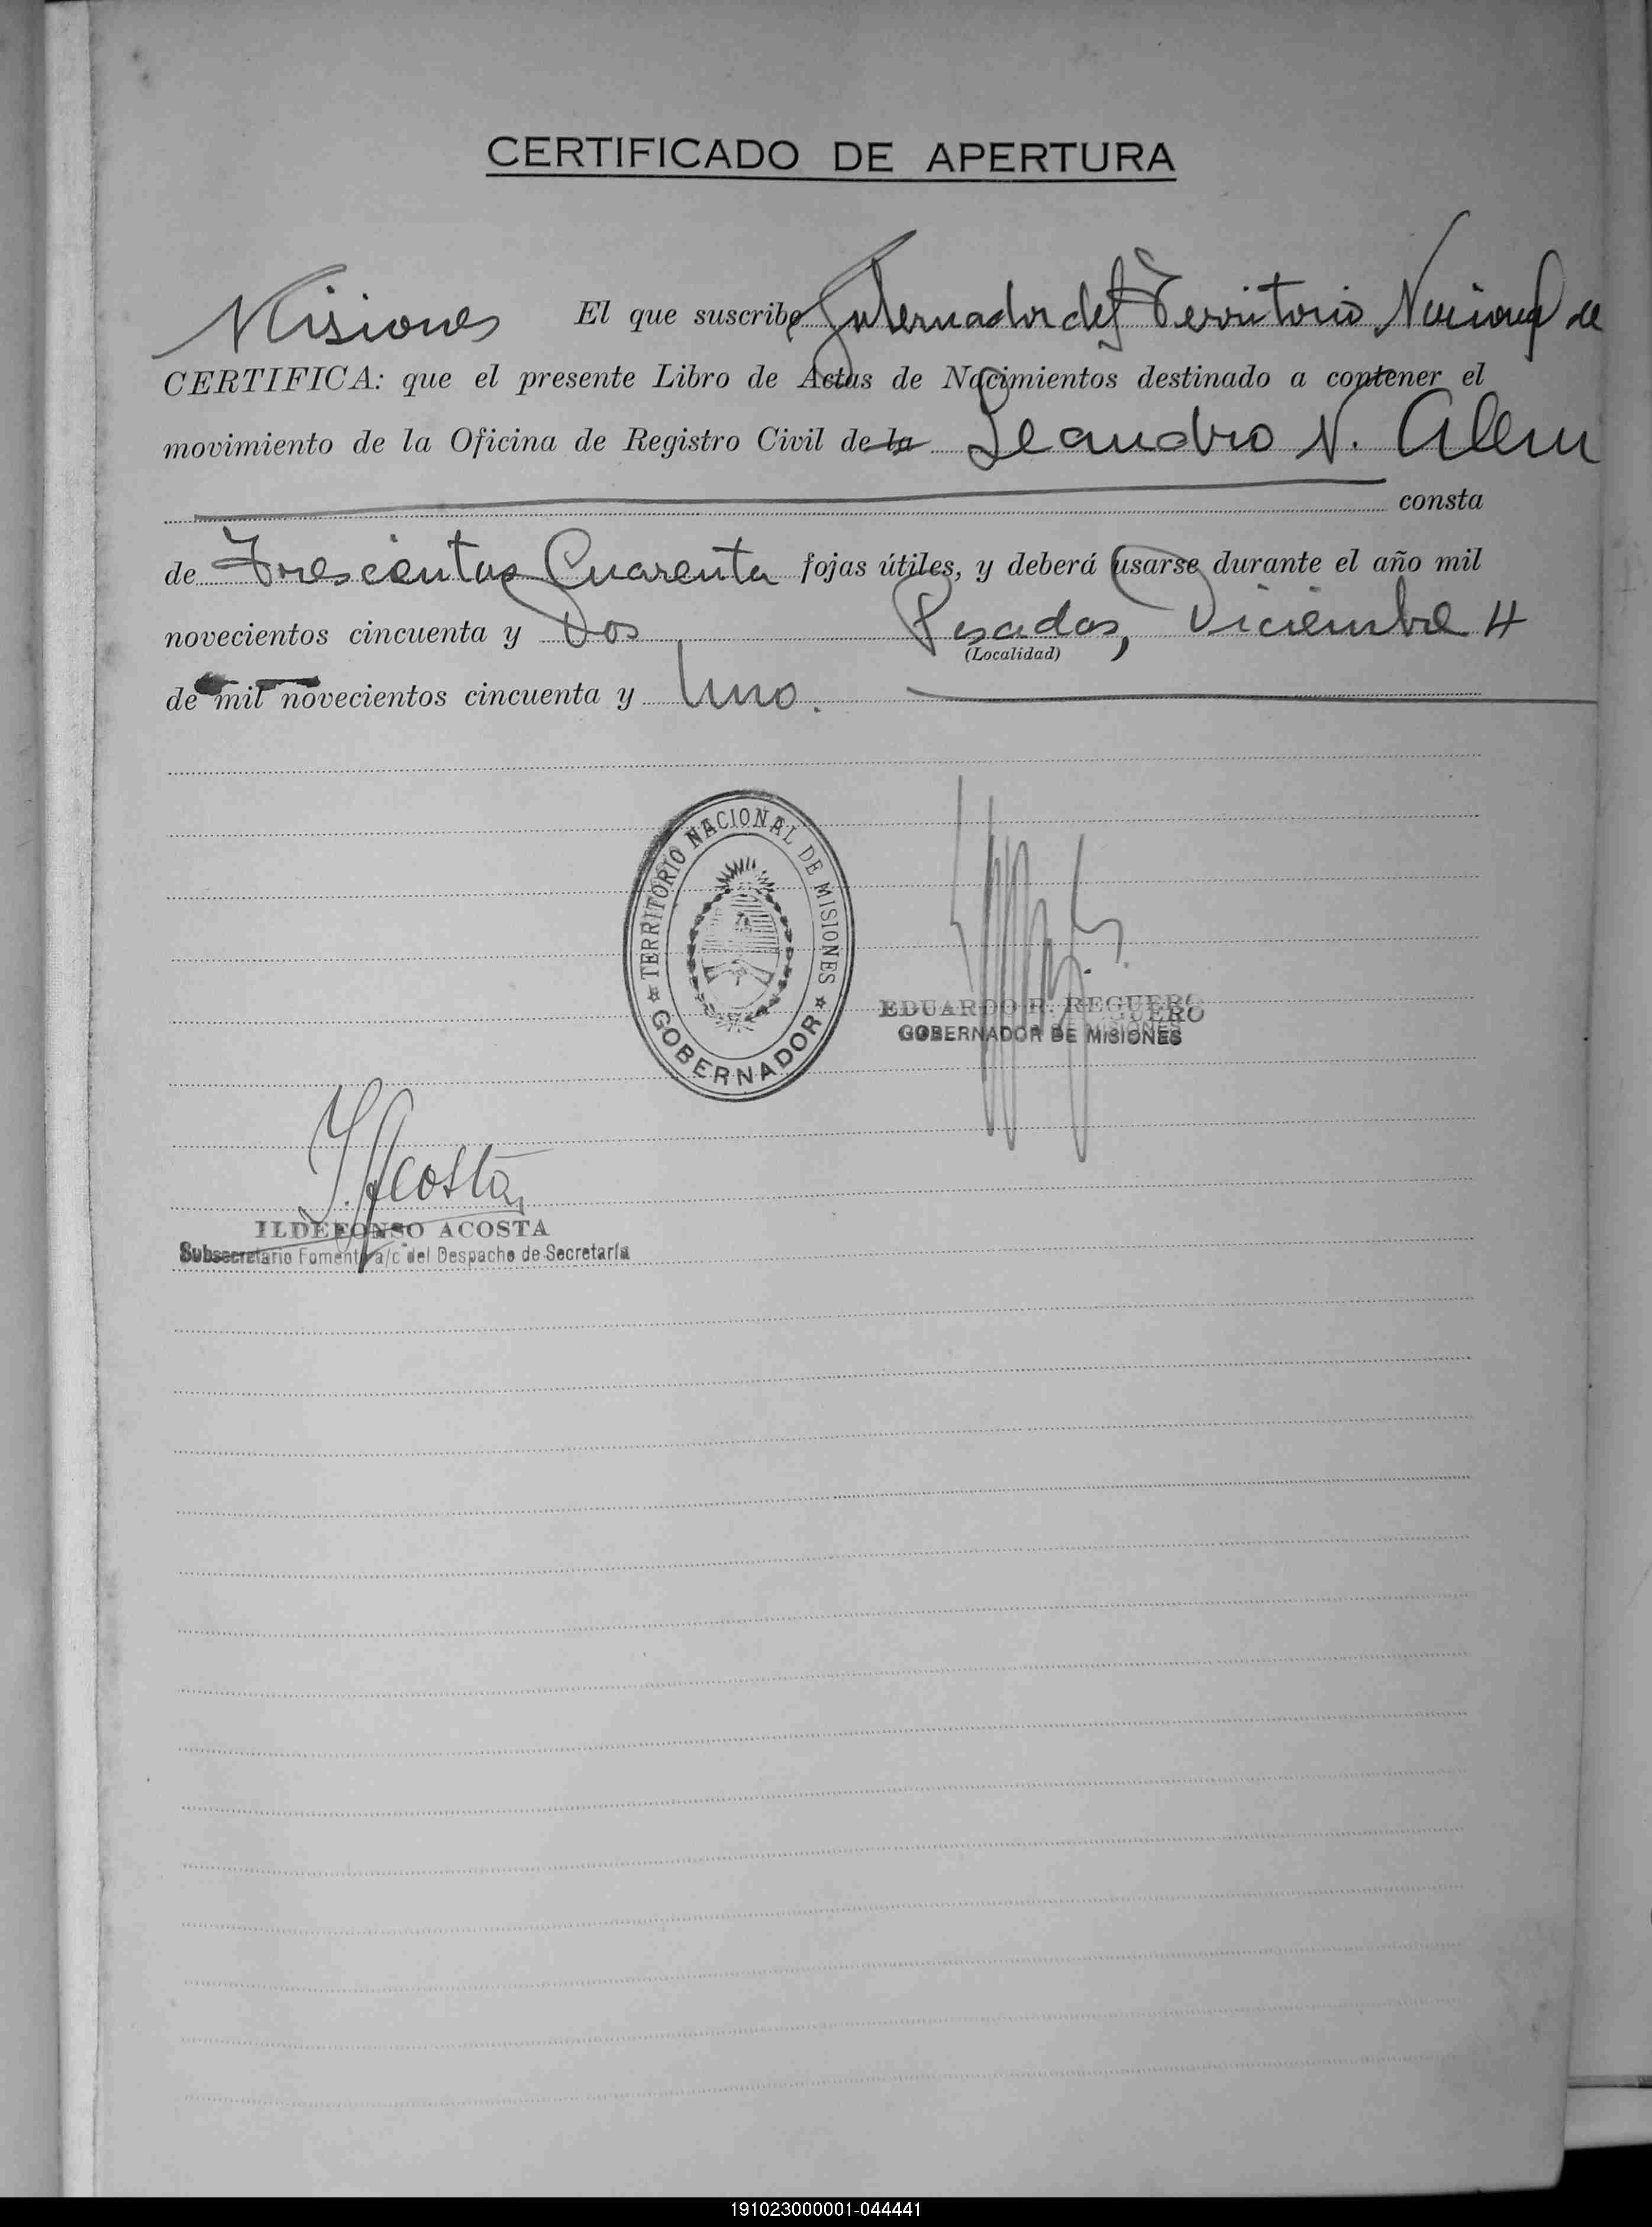 CERTIFICADO DE APERTURA
Misiones El que suscribe Gobernador del Territorio Nacional de
CERTIFICA: que el presente Libro de Actas de Nacimientos destinado a contener el
movimiento de la Oficina de Registro Civil de la Leandro N. Alem
consta
de Trescientas Cuarenta fojas útiles, y deberá usarse durante el año mil
novecientos cincuenta y Dos Posadas, Diciembre 4
(Localidad)
de mil novecientos cincuenta y Uno.
TERRITORIO NACIONAL DE MISIONES
GOBERNADOR
EDUARDO R. REGUERO
GOBERNADOR DE MISIONES
I. Acosta
ILDEFONSO ACOSTA
Subsecretario Fomento a/c del Despacho de Secretaría
191023000001-044441